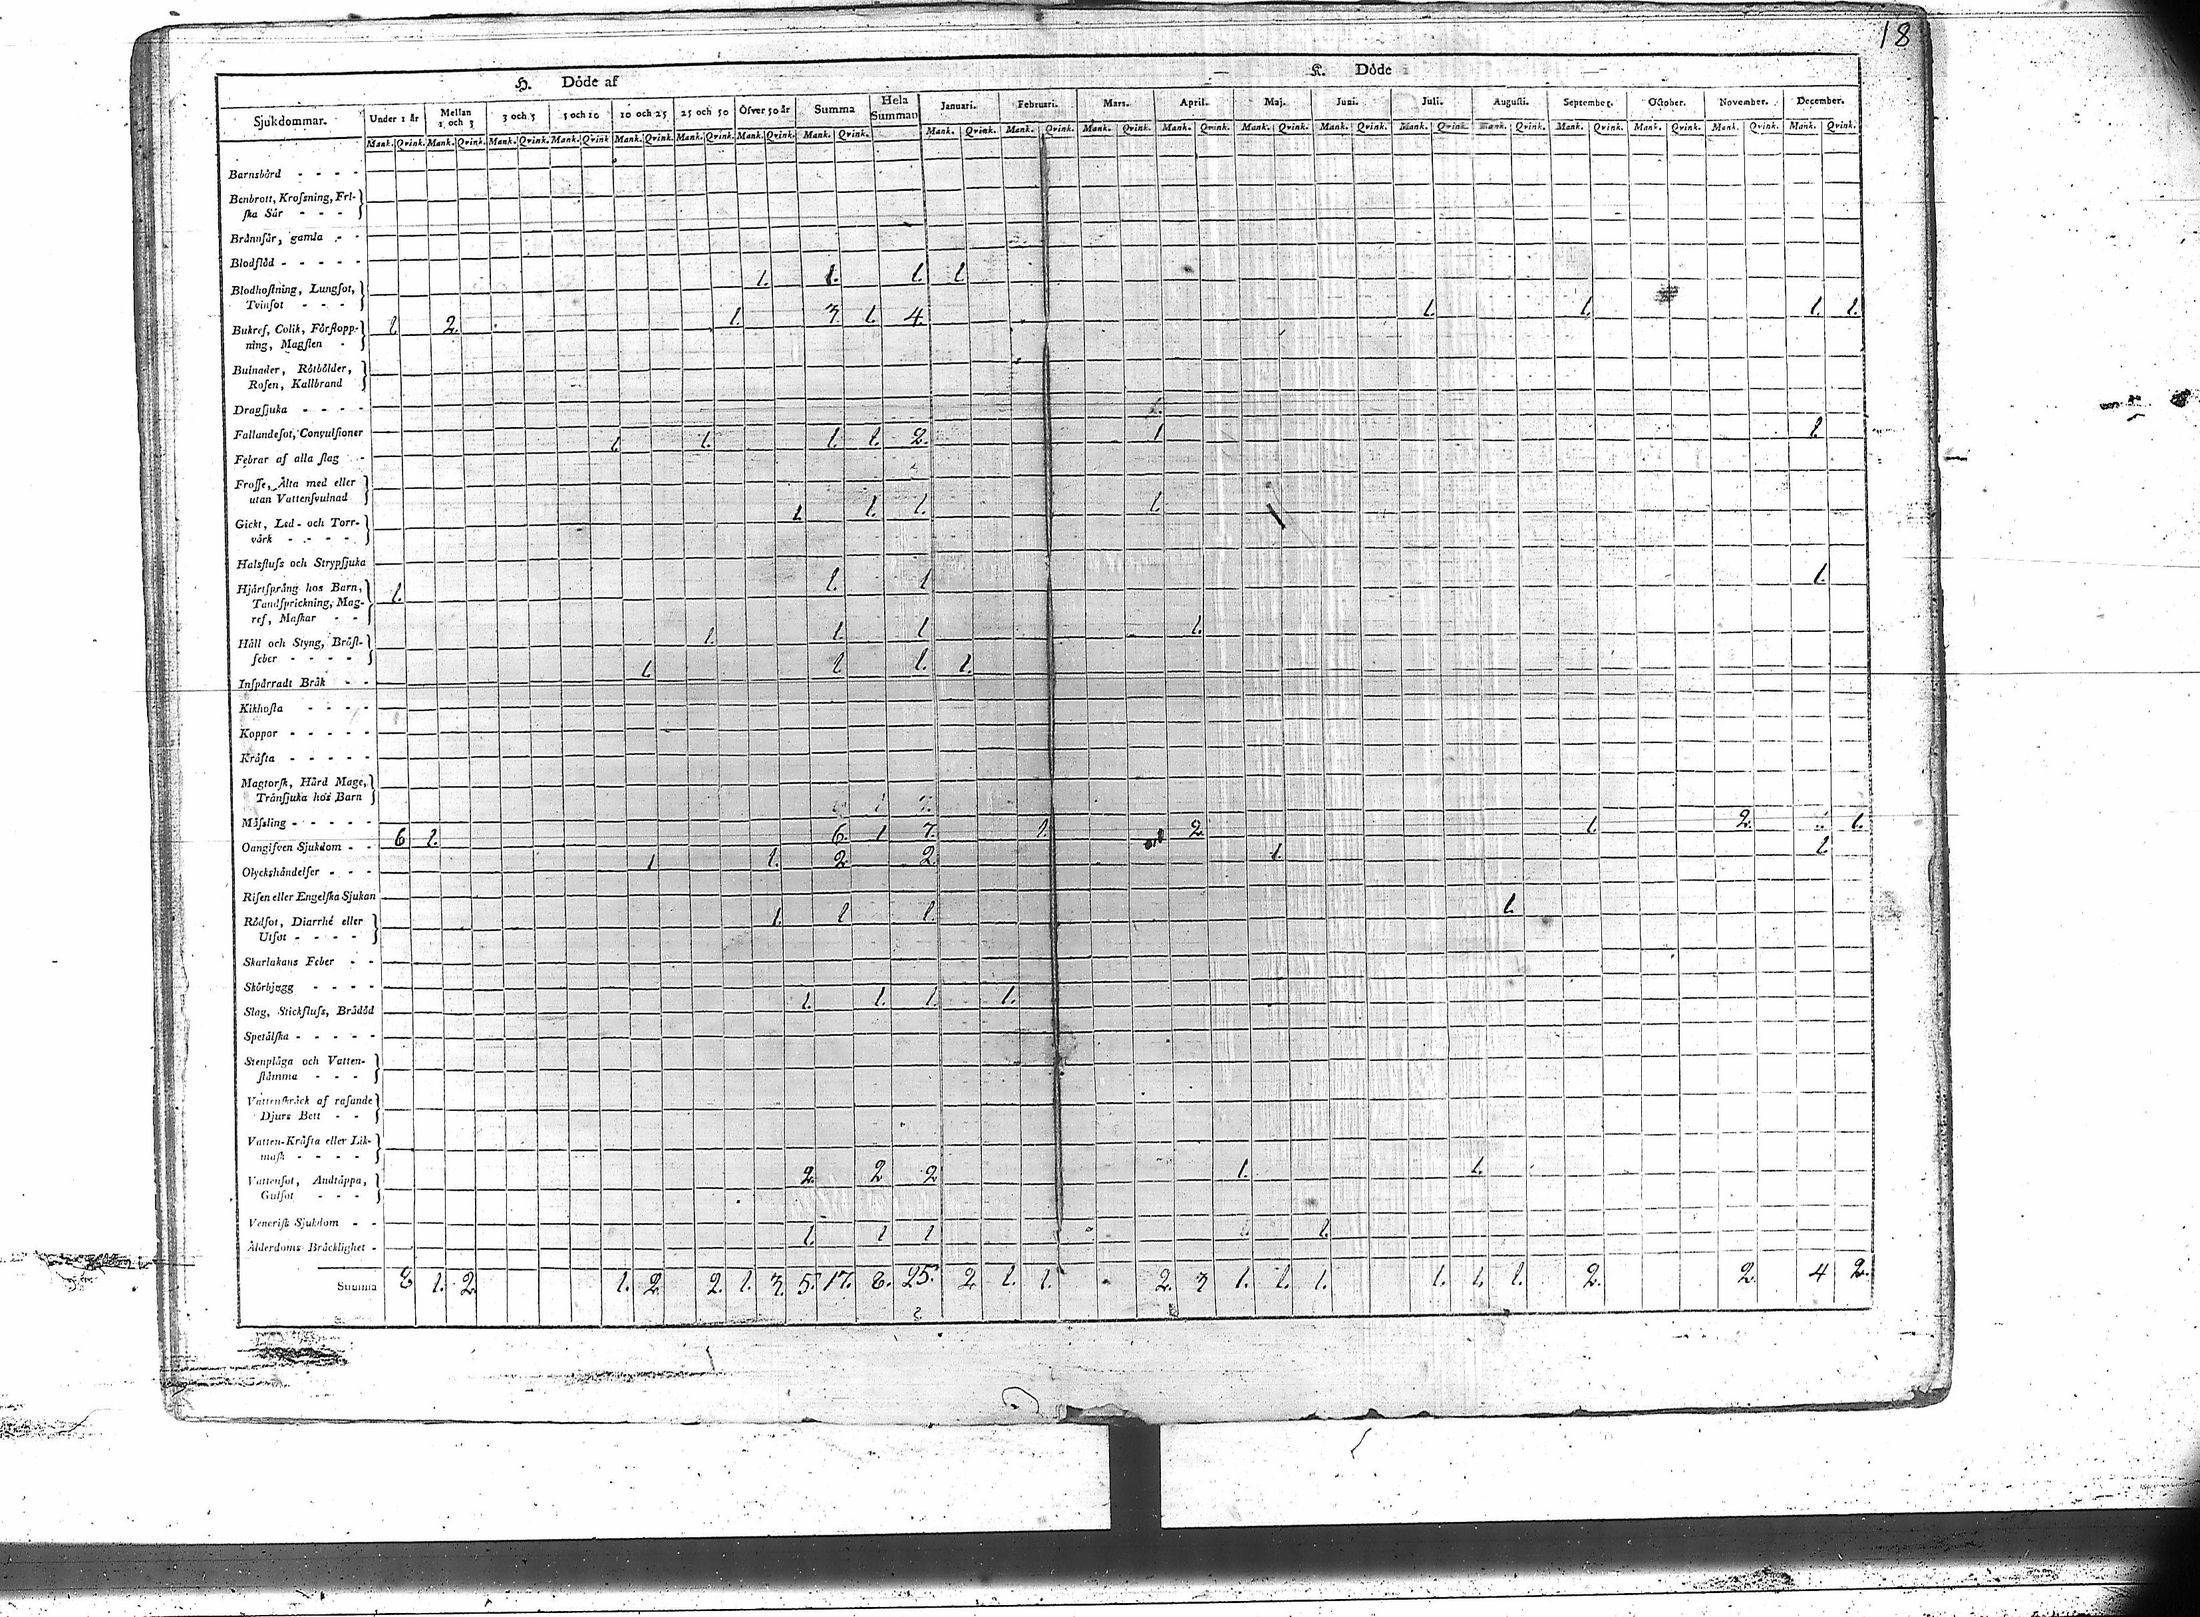 18
H. Döde af K. Döde i
Sjukdommar. Under 1 år Mellan 1 och 3 3 och 5 5 och 10 10 och 25 25 och 50 Öfver 50 år Summa Hela Summan Januari. Februari. Mars. April. Maj. Juni. Juli. Augusti. September. October. November. December.
Mank. Qvink. Mank. Qvink. Mank. Qvink. Mank. Qvink. Mank. Qvink. Mank. Qvink. Mank. Qvink. Mank. Qvink. Mank. Qvink. Mank. Qvink. Mank. Qvink. Mank. Qvink. Mank. Qvink. Mank. Qvink. Mank. Qvink. Mank. Qvink. Mank. Qvink. Mank. Qvink. Mank. Qvink. Mank. Qvink.
Barnsbörd - - - -
Benbrott, Krosning, Fri-
ska Sår - - -
Brånnsår, gamla - -
Blodflöd - - - - -
Blodhostning, Lungsot, 1. 1. 1. 1.
Tvinsot - - -
Bukref, Colik, Förstopp- 1. 2. 1. 3. 1. 4. 1. 1. 1. 1.
ning, Magsten -
Bulnader, Rötbölder,
Rosen, Kallbrand
Dragsjuka - - - -
Fallandesot, Convulsioner 1. 1. 1. 1. 2. 1 1.
Febrar af alla slag -
Frosse, Älta med eller
utan Vattensvulnad
Gickt, Led- och Torr- 1. 1. 1. 1.
värk - - - -
Halsfluss och Strypsjuka
Hjärtsprång hos Barn, 1. 1. 1 1.
Tandsprickning, Mag-
ref, Maskar - -
Håll och Styng, Bröst- 1. 1. 1 1.
feber - - - -
Inspärradt Bråk - - 1. 1 1. 1.
Kikhosta - - - -
Koppor - - - - -
Kräfta - - - - -
Magtorsk, Hård Mage,
Trånsjuka hos Barn
Mässling - - - - -
Oangifven Sjukdom - - 6 1. 6. 1 7. 1. 2. 1. 2. 1.
Olyckshändelser - - - 1 1. 2 2. 1. 1.
Risen eller Engelska Sjukan
Rödsot, Diarrhé eller 1. 1 1 1.
Utsot - - - -
Skarlakans Feber - -
Skörbjugg - - - -
Slag, Stickfluss, Brådöd 1. 1. 1. 1.
Spetälska - - - - -
Stenplåga och Vatten-
stämma - - -
Vattenskräck af rasande
Djurs Bett - -
Vatten-Kräfta eller Lik-
mask - - - -
Vattensot, Andtäppa, 2. 2 2 1. 1.
Gulsot - - -
Venerisk Sjukdom - -
Ålderdoms Bräcklighet - 1. 1 1 1.
Summa 8 1. 2. 1. 2. 2. 1. 3. 5. 17. 8. 25. 2 1. 1. 2. 3 1. 1. 1. 1. 1. 1. 2. 2. 4 2.